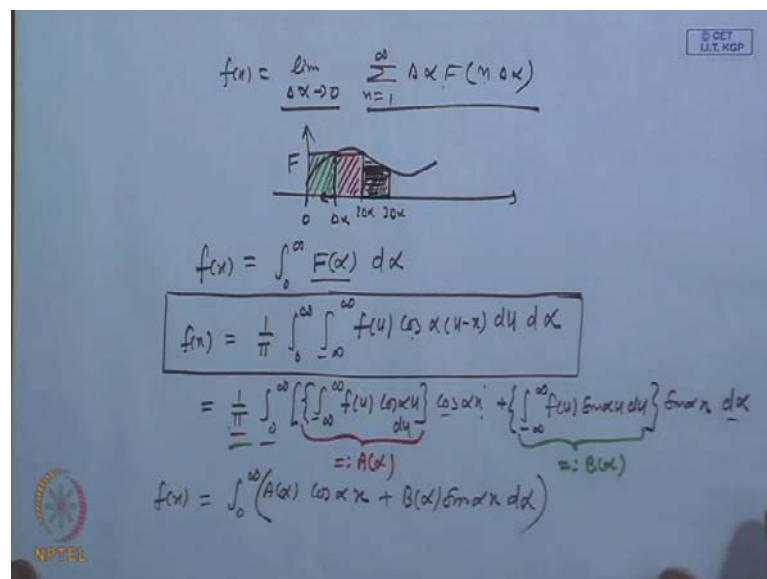 © CET
I.I.T. KGP
f(x) = lim_{Δα→0} ∑_{n=1}^{∞} Δα F(n Δα)
F
0 Δα 2Δα 3Δα
f(x) = ∫_0^∞ F(α) dα
f(x) = 1/π ∫_0^∞ ∫_{-∞}^∞ f(u) cos α(u-x) du dα
= 1/π ∫_0^∞ [{∫_{-∞}^∞ f(u) cos αu du} cos αx + {∫_{-∞}^∞ f(u) sin αu du} sin αx dα
=: A(α) =: B(α)
f(x) = ∫_0^∞ (A(α) cos αx + B(α) sin αx dα)
NPTEL